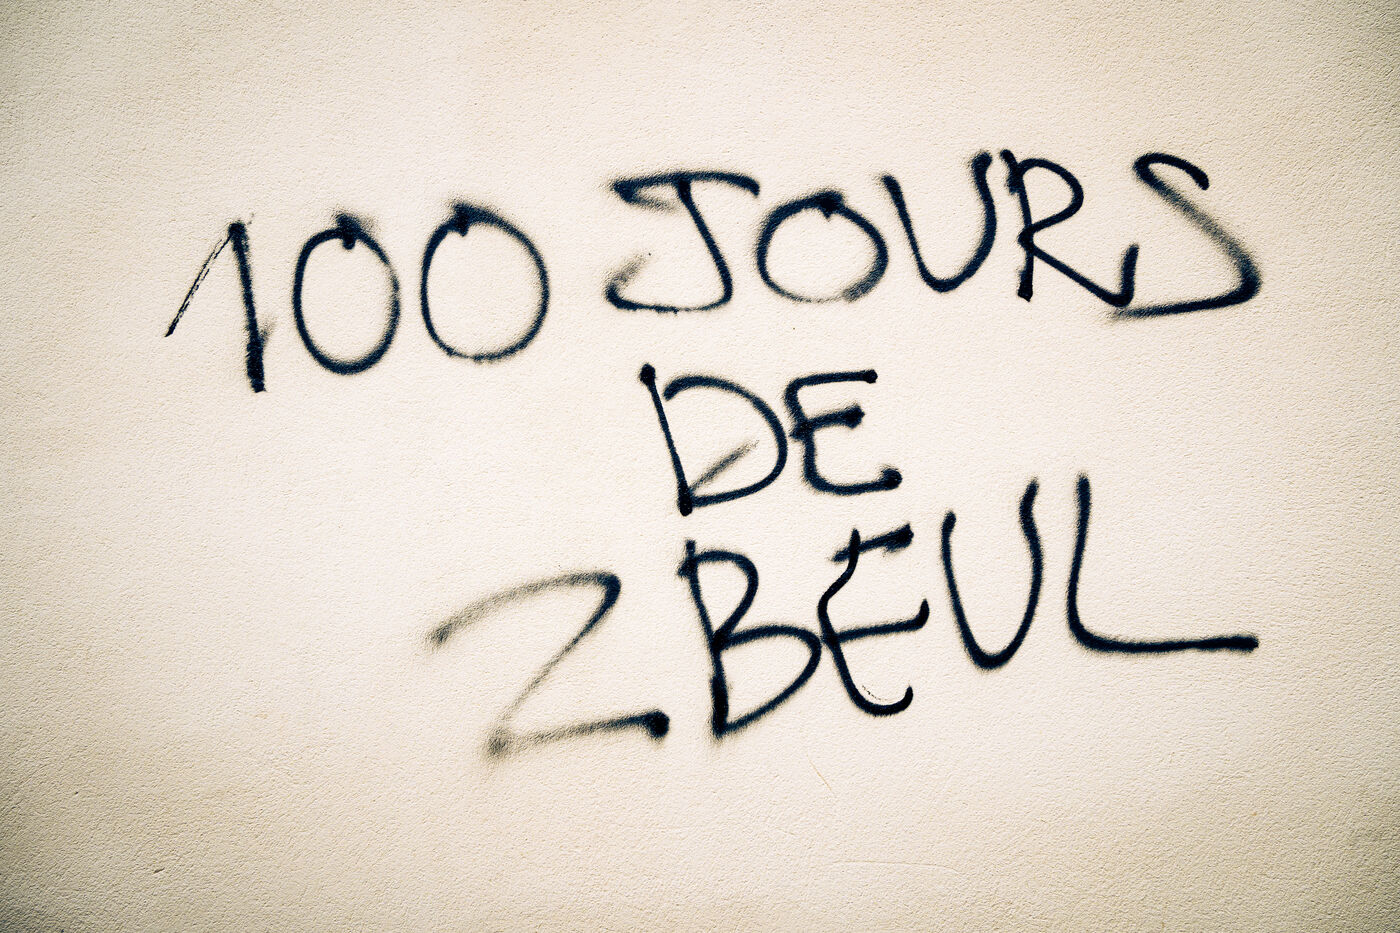 100 JOURS
DE
ZBEUL